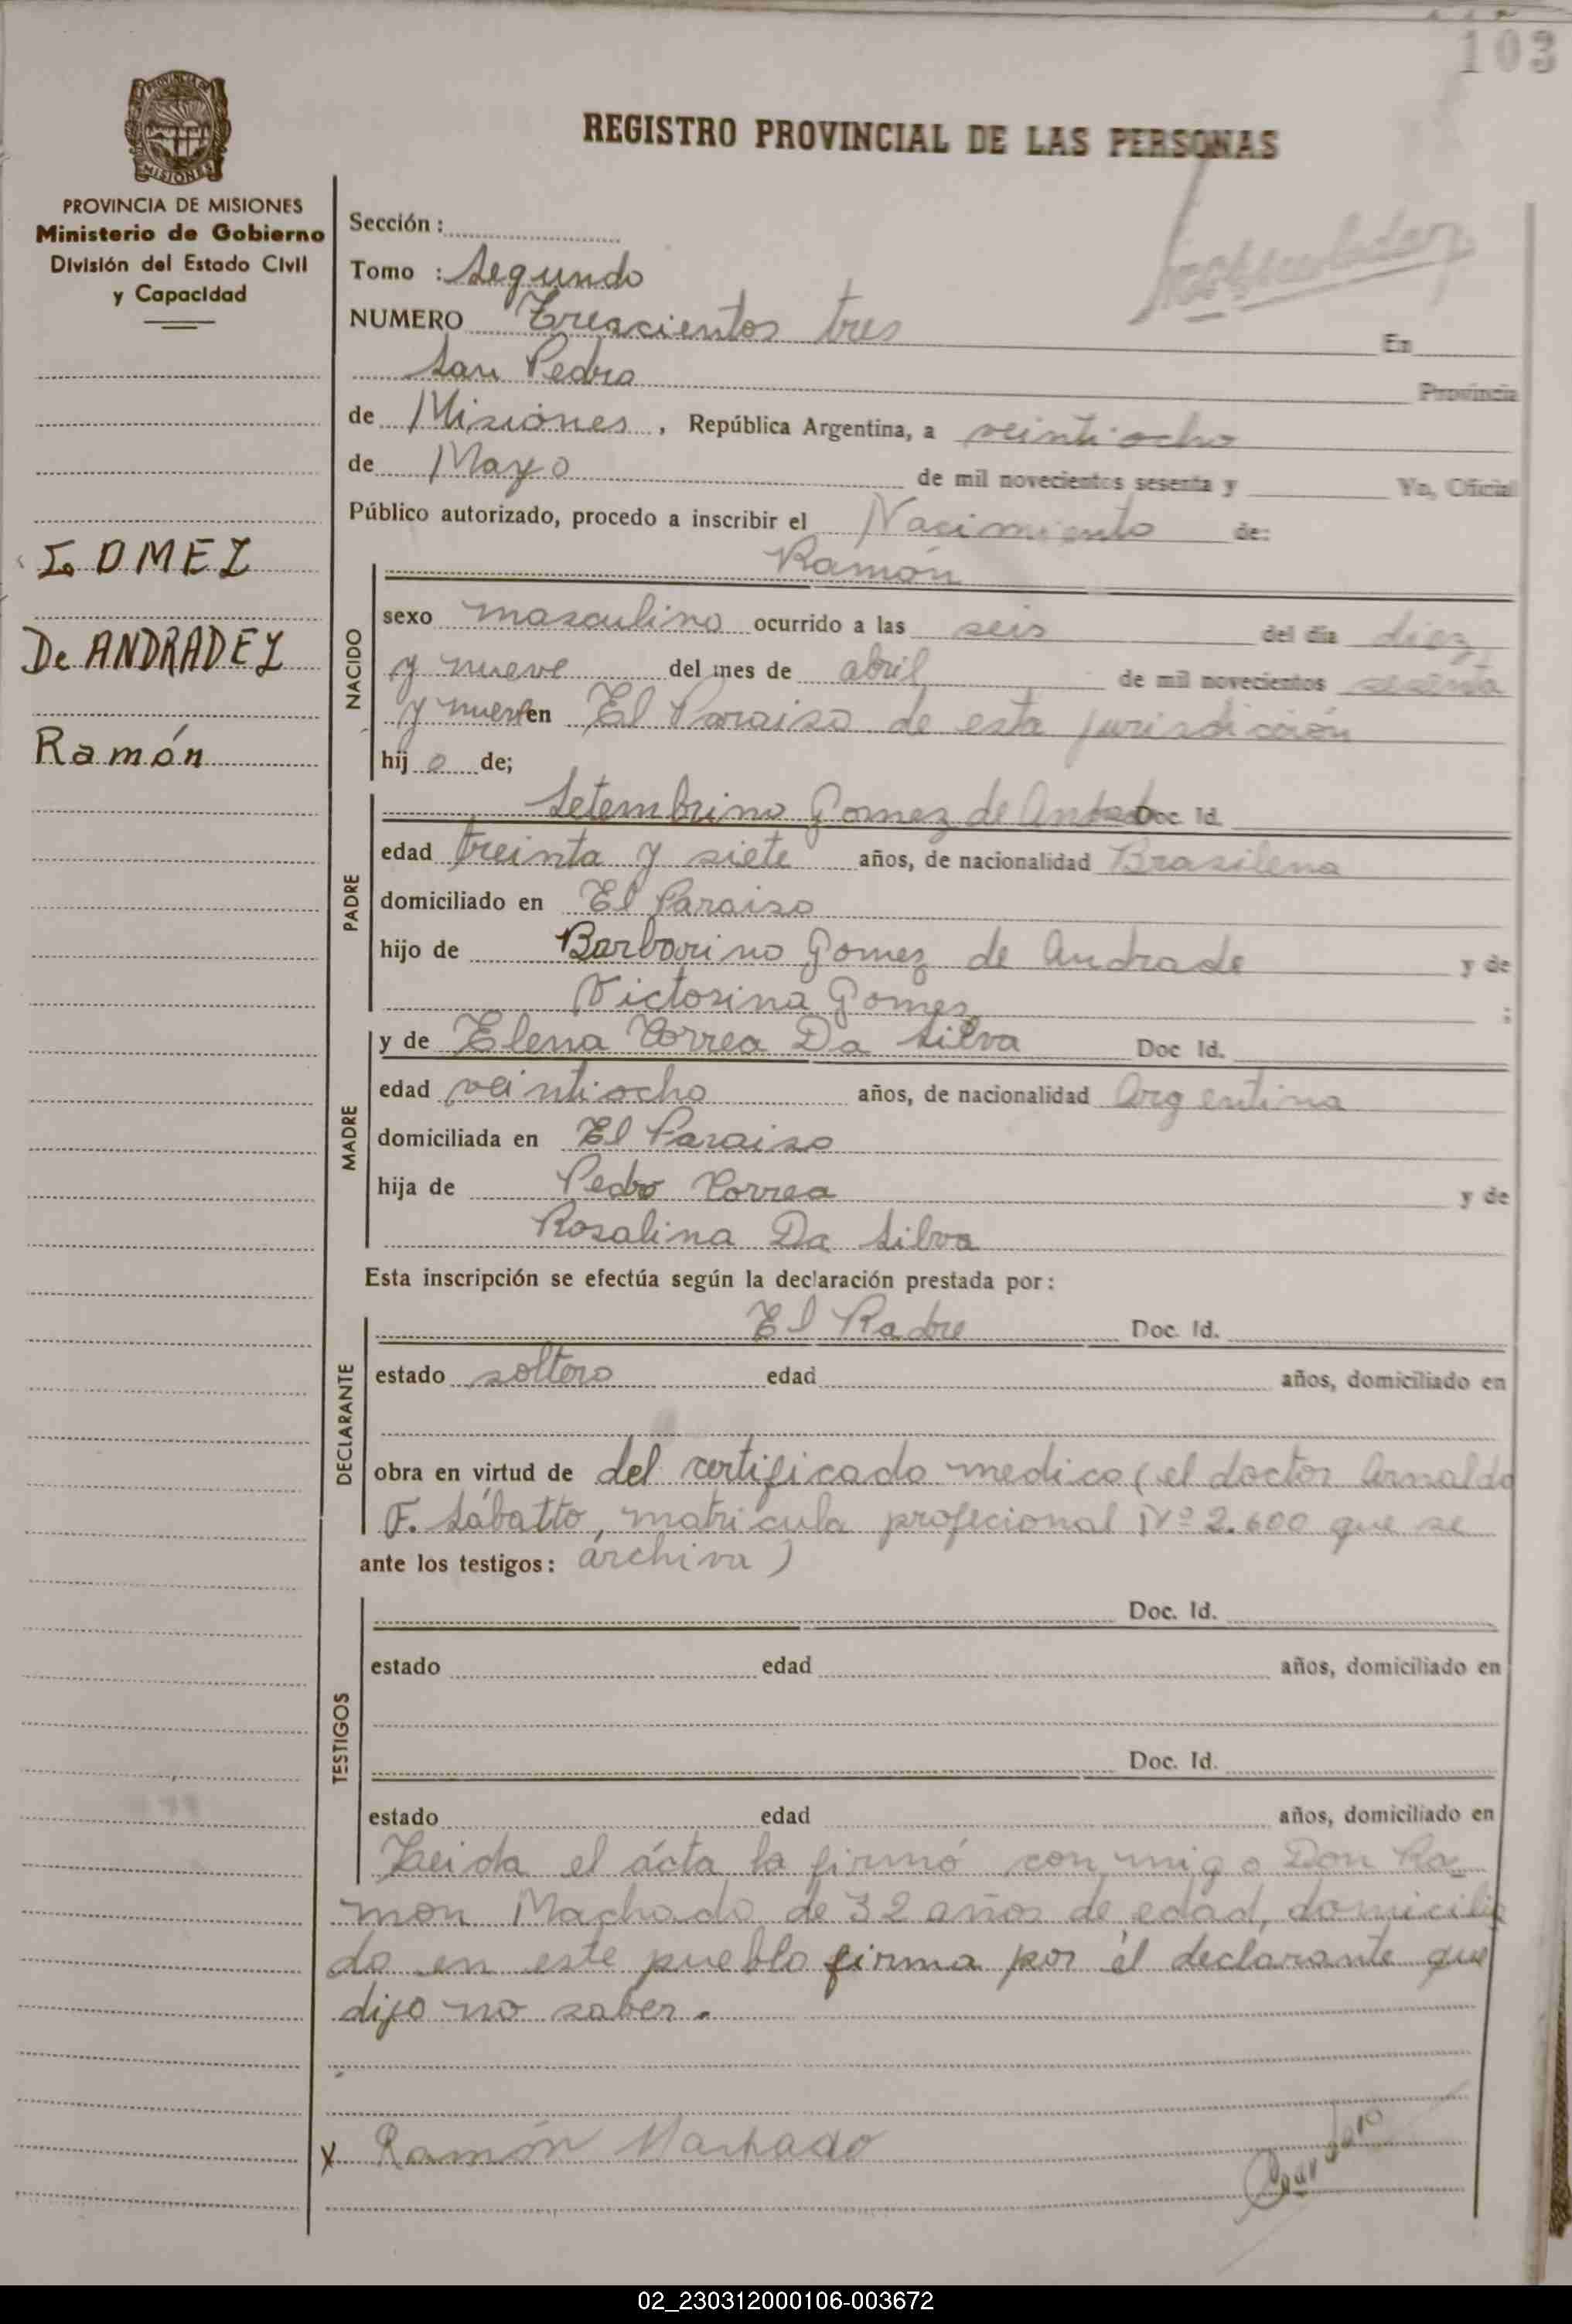 103
REGISTRO PROVINCIAL DE LAS PERSONAS
PROVINCIA DE MISIONES
Ministerio de Gobierno
División del Estado Civil
y Capacidad
Sección :
Tomo : Segundo
NUMERO Trescientos tres En
San Pedro Provincia
de Misiones, República Argentina, a veintiocho
de Mayo de mil novecientos sesenta y Yo, Oficial
Público autorizado, procedo a inscribir el Nacimiento de:
GOMEZ
De ANDRADEZ
Ramón
NACIDO
Ramón
sexo masculino ocurrido a las seis del día diez
y nueve del mes de abril de mil novecientos sesenta
y nueve en El Paraiso de esta jurisdicción
hijo de;
PADRE
Setembrino Gomez de Doc. Id.
edad treinta y siete años, de nacionalidad Brasilena
domiciliado en El Paraiso
hijo de Barbarino Gomez de Andrade y de
Victorina Gomes ;
MADRE
y de Elena Correa Da Silva Doc Id.
edad veintiocho años, de nacionalidad Argentina
domiciliada en El Paraiso
hija de Pedro Correa y de
Rosalina Da Silva
Esta inscripción se efectúa según la declaración prestada por:
DECLARANTE
El Padre Doc. Id.
estado soltero edad años, domiciliado en
obra en virtud de del certificado medico (el doctor Arnaldo
F. Sábatto, matricula profecional Nº 2.600 que se
ante los testigos: archiva)
TESTIGOS
Doc. Id.
estado edad años, domiciliado en
Doc. Id.
estado edad años, domiciliado en
Leida el ácta la firmó conmigo Don Ra-
mon Machado de 32 años de edad, domicilia
do en este pueblo firma por él declarante que
dijo no saber.
x Ramón Machado
02_230312000106-003672